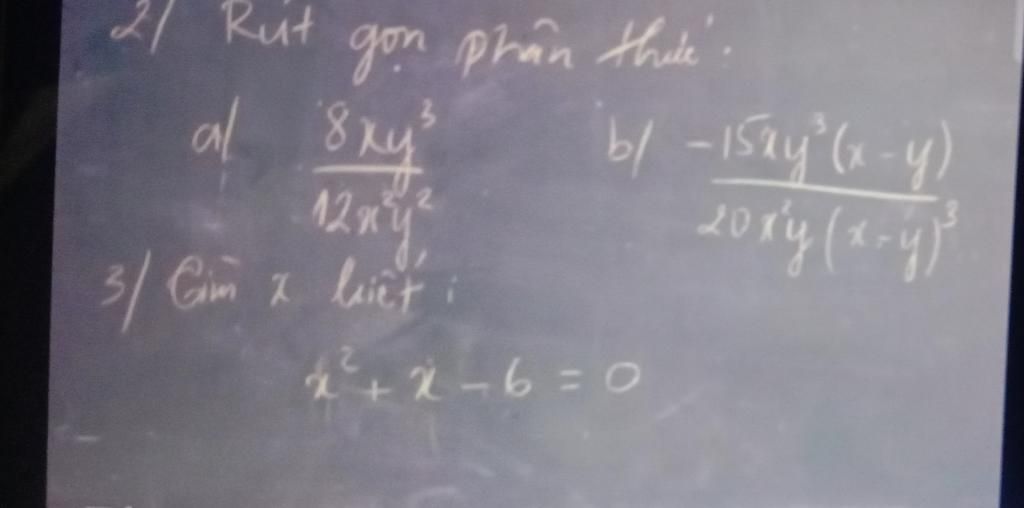 2/ Rút gọn phân thức:
a/ 8xy³/12x²y² b/ -15xy³(x-y)/20x²y(x-y)³
3/ Tìm x biết:
x² + x - 6 = 0